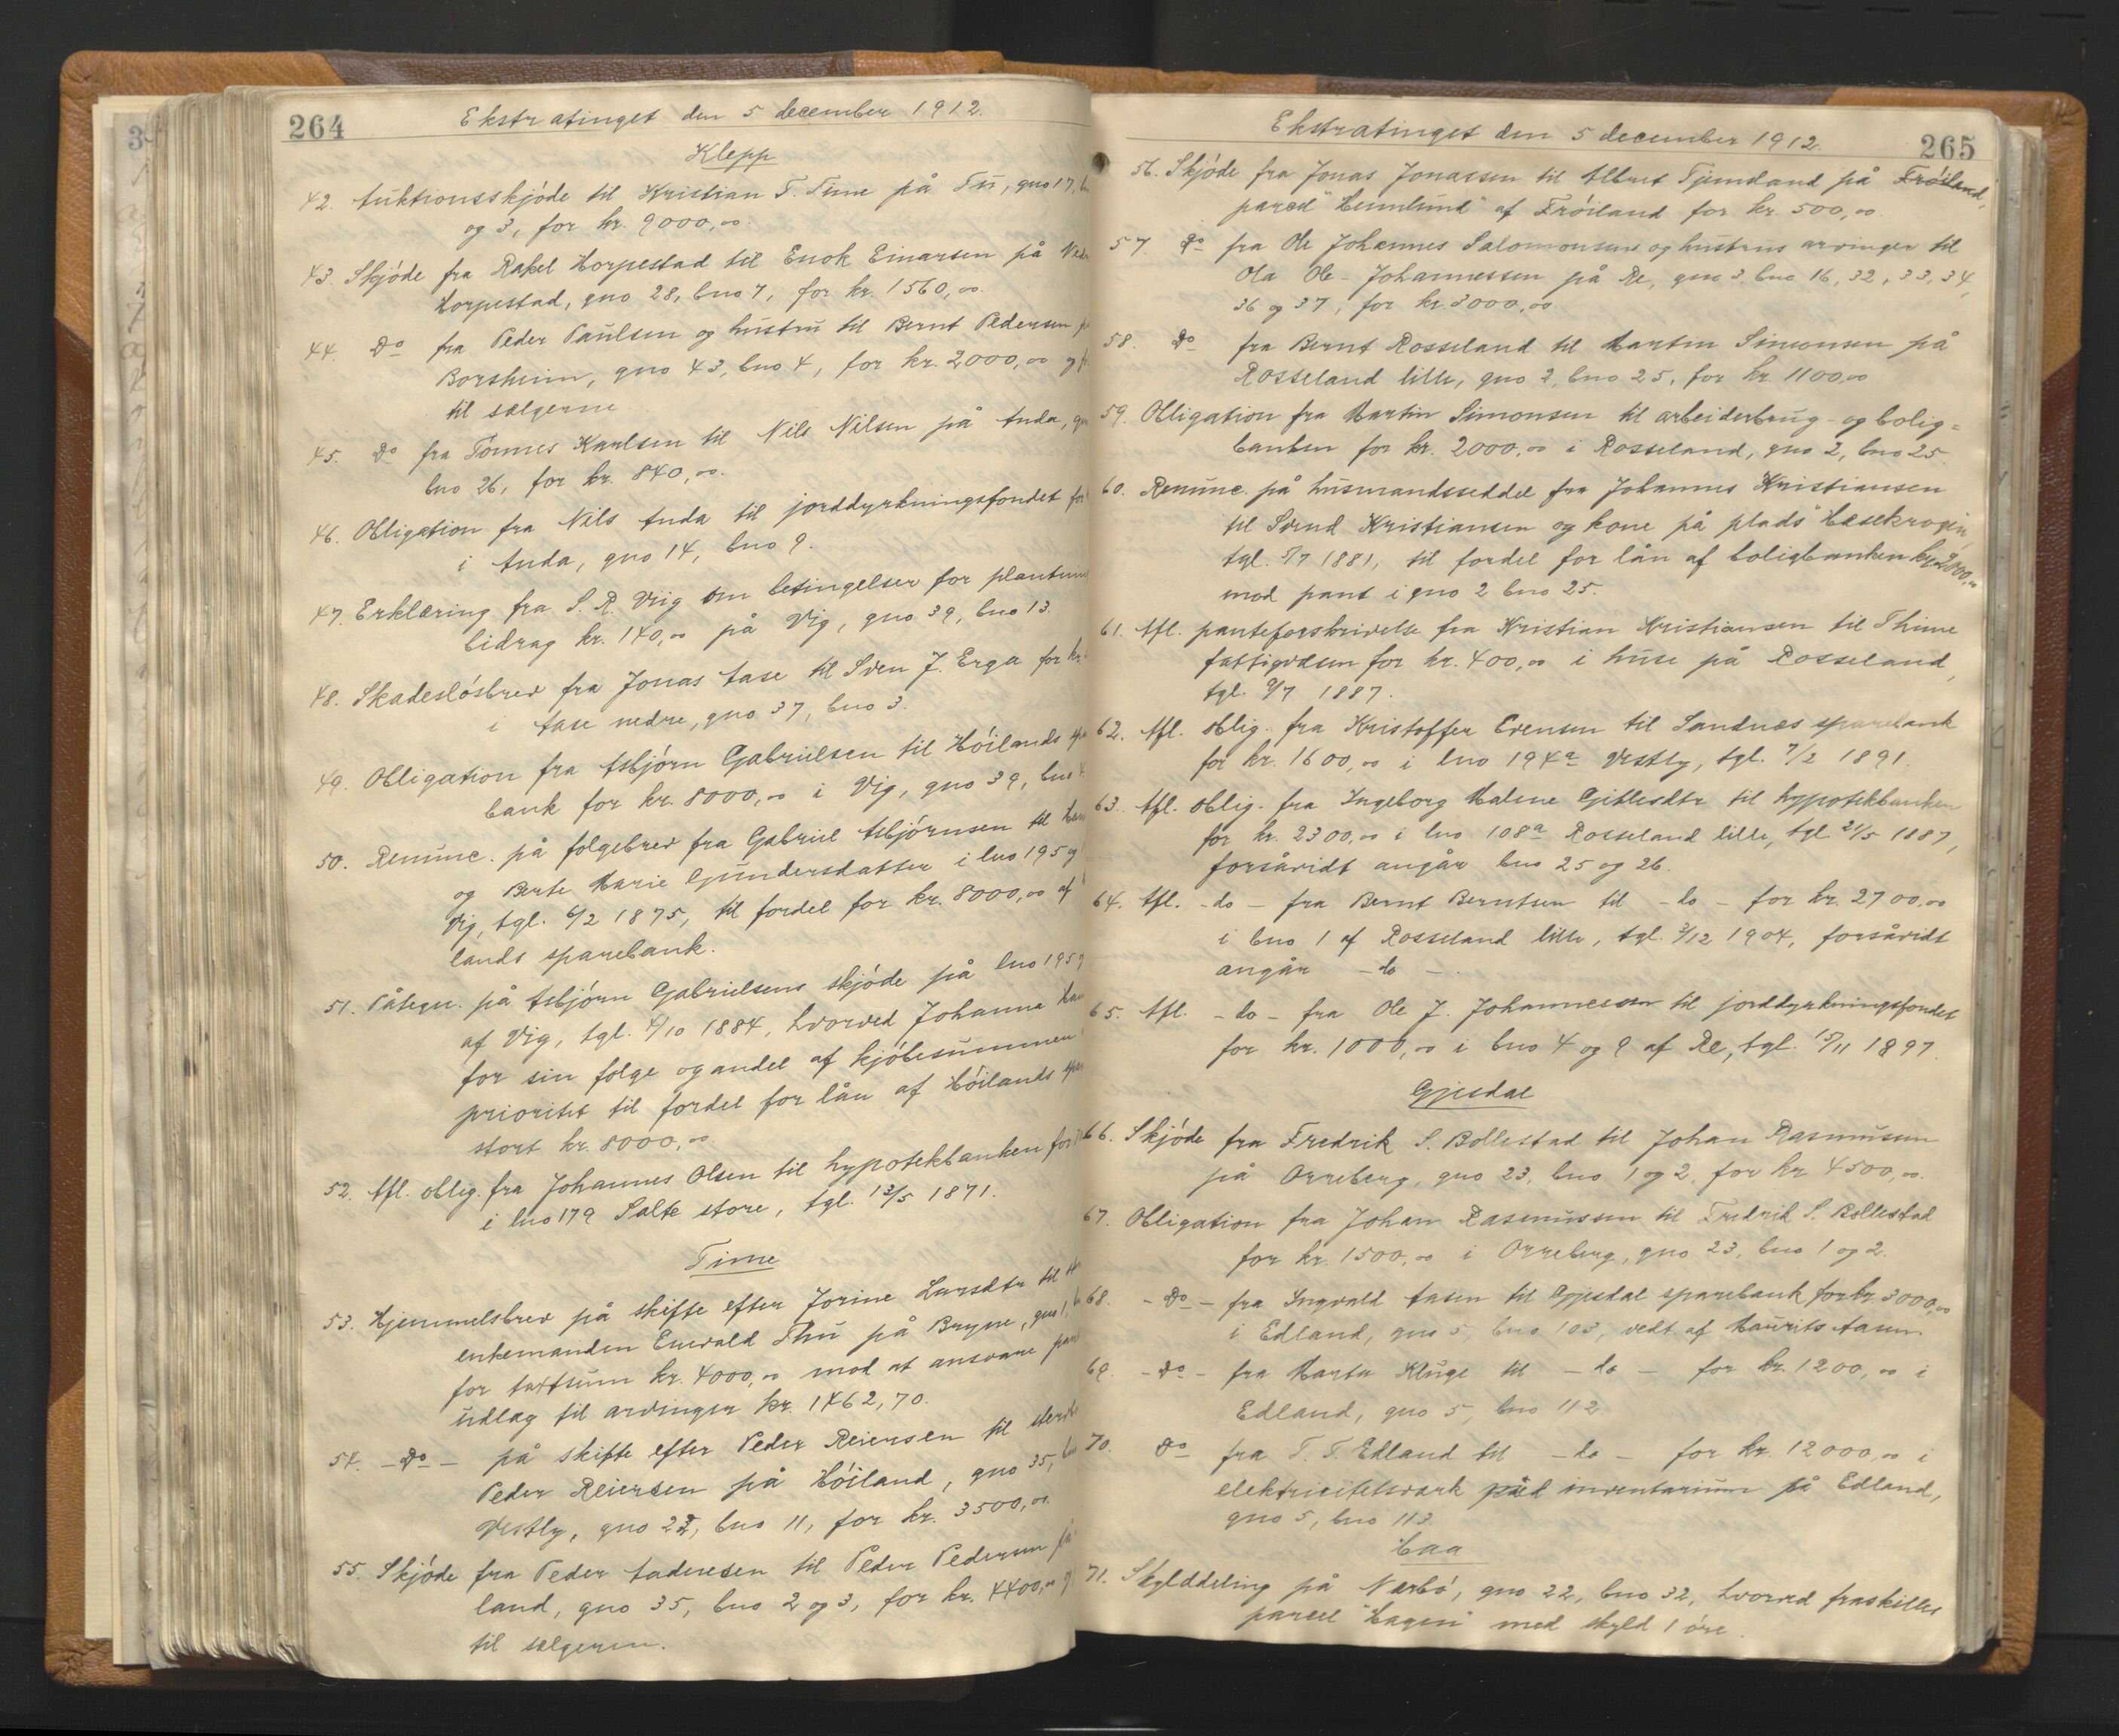 264
Ekstratinget den 5 december 1912.
Klepp
42. Auktionsskjóde til Kristian T. Time på Tú, gno 17,
og 3, for kr. 9000,oo.
43. Skjóde fra Rakel Horpestad til Enok Einarsen på
Horpestad, gno 28, bno 7, for kr. 1560,oo.
44. Do fra Peder Paulsen og hustru til Bernt Pedersen
Borsheim, gno 43, bno 4, for kr. 2000,oo
til sælgerne.
45. Do fra Tónnes Karlsen til Nils Nilsen på Anda,
bno 26, for kr. 840,oo.
46. Obligation fra Nils Anda til jorddyrkningsfondet for
i Anda, gno 14, bno 9.
47. Erklæring fra S. R. Viig om betingelser for
bidrag kr. 140,oo på Vig, gno 39, bno 13.
48. Skadeslósbrev fra Jonas Aase til Sven J. Erga for kr.
i Aase nedre, gno 37, bno 3.
49. Obligation fra Asbjórn Gabrielsen til Hóilands
bank for kr. 8000,oo i Vig, gno 39, bno
50. Renunc. på folgebrev fra Gabriel Asbjórnsen til
og Berte Marie Gundersdatter i lno 195
Vig, tgl. 6/2 1875, til fordel for kr. 8000,oo af
lands sparebank.
51. Påtegn. på Asbjórn Gabrielsens skjóde på lno 195
af Vig, tgl. 4/10 1884, hvorved Johanne
for sin folge og andel af kjóbesummen
prioritet til fordel for lån af Hóilands
stort kr. 8000,oo
52. Afl. oblig. fra Johannes Olsen til hypotekbanken for
i lno 179 Salte store, tgl. 13/5 1871.
Time
53. Hjemmelsbrev på skifte efter Jorine Larsdtr til
enkemanden Enevald Thu på Bryne, gno 1,
for takstsum kr. 4000,oo mod at ansvare
udlæg til arvinger kr. 1462,70.
54. - Do - på skifte efter Peder Reiersen til
Peder Reiersen på Hóiland, gno 35,
Vestly, gno 22, bno 11, for kr. 3500,oo.
55. Skjóde fra Peder Andersen til Peder Pedersen
land, gno 35, bno 2 og 3, for kr. 4400,oo
til sælgeren.
265
Ekstratinget den 5 december 1912.
56. Skjóde fra Jonas Jonassen til Albret Tjemsland på Fróiland,
parcel "Heimlund" af Fróiland for kr. 500,oo.
57. Do fra Ole Johannes Salomonsens og hustrus arvinger til
Ola Ole-Johannessen på Re, gno 3, bno 16, 32, 33, 34,
36 og 37, for kr. 3000,oo.
58. Do fra Bernt Rosseland til Martin Simonsen på
Rosseland lille, gno 2, bno 25, for kr. 1100,oo
59. Obligation fra Martin Simonsen til arbeiderbrug- og bolig=
banken for kr. 2000,oo i Rosseland, gno 2, bno 25.
60. Renunc. på husmandsseddel fra Johannes Kristiansen
til Svend Kristiansen og kone på plads "Hæsekrogen",
tgl. 5/7 1881, til fordel for lån af boligbanken kr. 2000,oo
mod pant i gno 2 bno 25.
61. Afl. panteforskrivelse fra Kristian Kristiansen til Thime
fattigvæsen for kr. 400,oo i huse på Rosseland,
tgl. 9/7 1887.
62. Afl. oblig. fra Kristoffer Evensen til Sandnæs sparebank
for kr. 1600,oo i lno 194a Vestly, tgl. 7/2 1891.
63. Afl. oblig. fra Ingeborg Malene Gitlesdtr til hypotekbanken
for kr. 2300,oo i lno 108a Rosseland lille, tgl. 21/5 1887,
forsåvidt angår bno 25 og 26.
64. Afl. - do - fra Bernt Berntsen til - do - for kr. 2700,oo
i bno 1 af Rosseland lille, tgl. 3/12 1904, forsåvidt
angår - do -.
65. Afl. - do - fra Ole J. Johannessen til jorddyrkningsfondet
for kr. 1000,oo i bno 4 og 9 af Re, tgl. 15/11 1897.
Gjesdal
66. Skjóde fra Fredrik S. Bollestad til Johan Rasmussen
på Orreberg, gno 23, bno 1 og 2, for kr 4500,oo.
67. Obligation fra Johan Rasmussen til Fredrik S. Bollestad
for kr. 1500,oo i Orreberg, gno 23, bno 1 og 2.
68. - Do - fra Ingvald Aasen til Gjesdal sparebank for kr. 3000,oo
i Edland, gno 5, bno 103, vedt. af Maurits Aasen.
69. - Do - fra Marta Kluge til - do - for kr. 1200,oo i
Edland, gno 5, bno 112
70. Do fra T. T. Edland til - do - for kr. 12000,oo i
elektricitetsværk med inventarium på Edland,
gno 5, bno 113.
Haa
71. Skylddeling på Nærbó, gno 22, bno 32, hvorved fraskilles
parcel "Hagen" med skyld 1 óre.